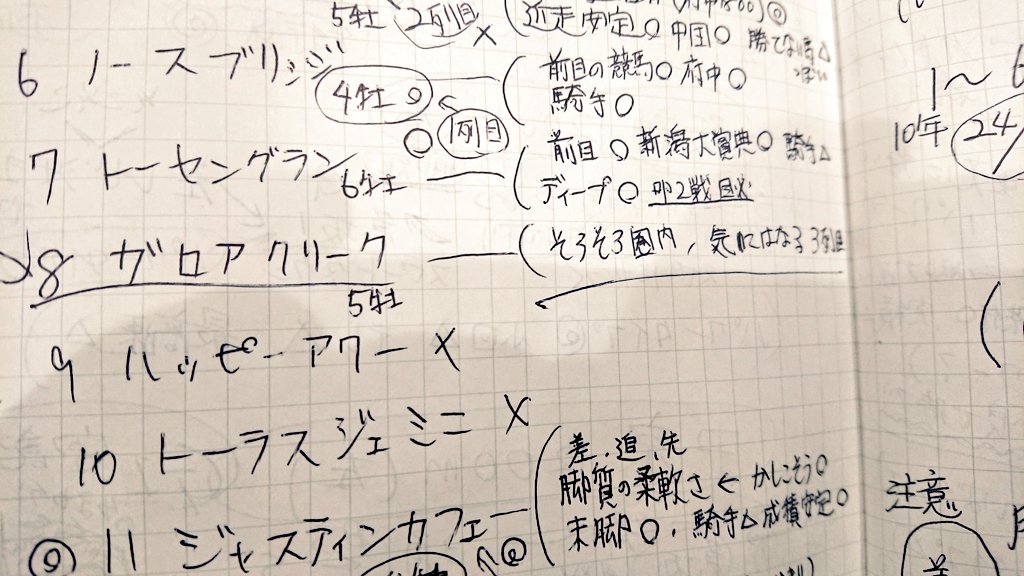 5牡 2列目 × 近走安定○ 中団○ 勝てない時△
6 ノースブリッジ 4牡 ◎ 前目の競馬○ 府中○
騎手○
7 トーセングラン 6牡 ○ 1列目 前目○ 新潟大賞典○ 騎手△
ディープ○ 叩2戦目
8 ガロアクリーク 5牡 そろそろ圏内、気にはなる 3列目
9 ハッピーアワー ×
10 トーラスジェミニ ×
◎ 11 ジャスティンカフェ ◎ 差、追、先
脚質の柔軟さ ← かしこそう○
末脚○、騎手△ 成績安定○
1〜6
10年 24/
注意